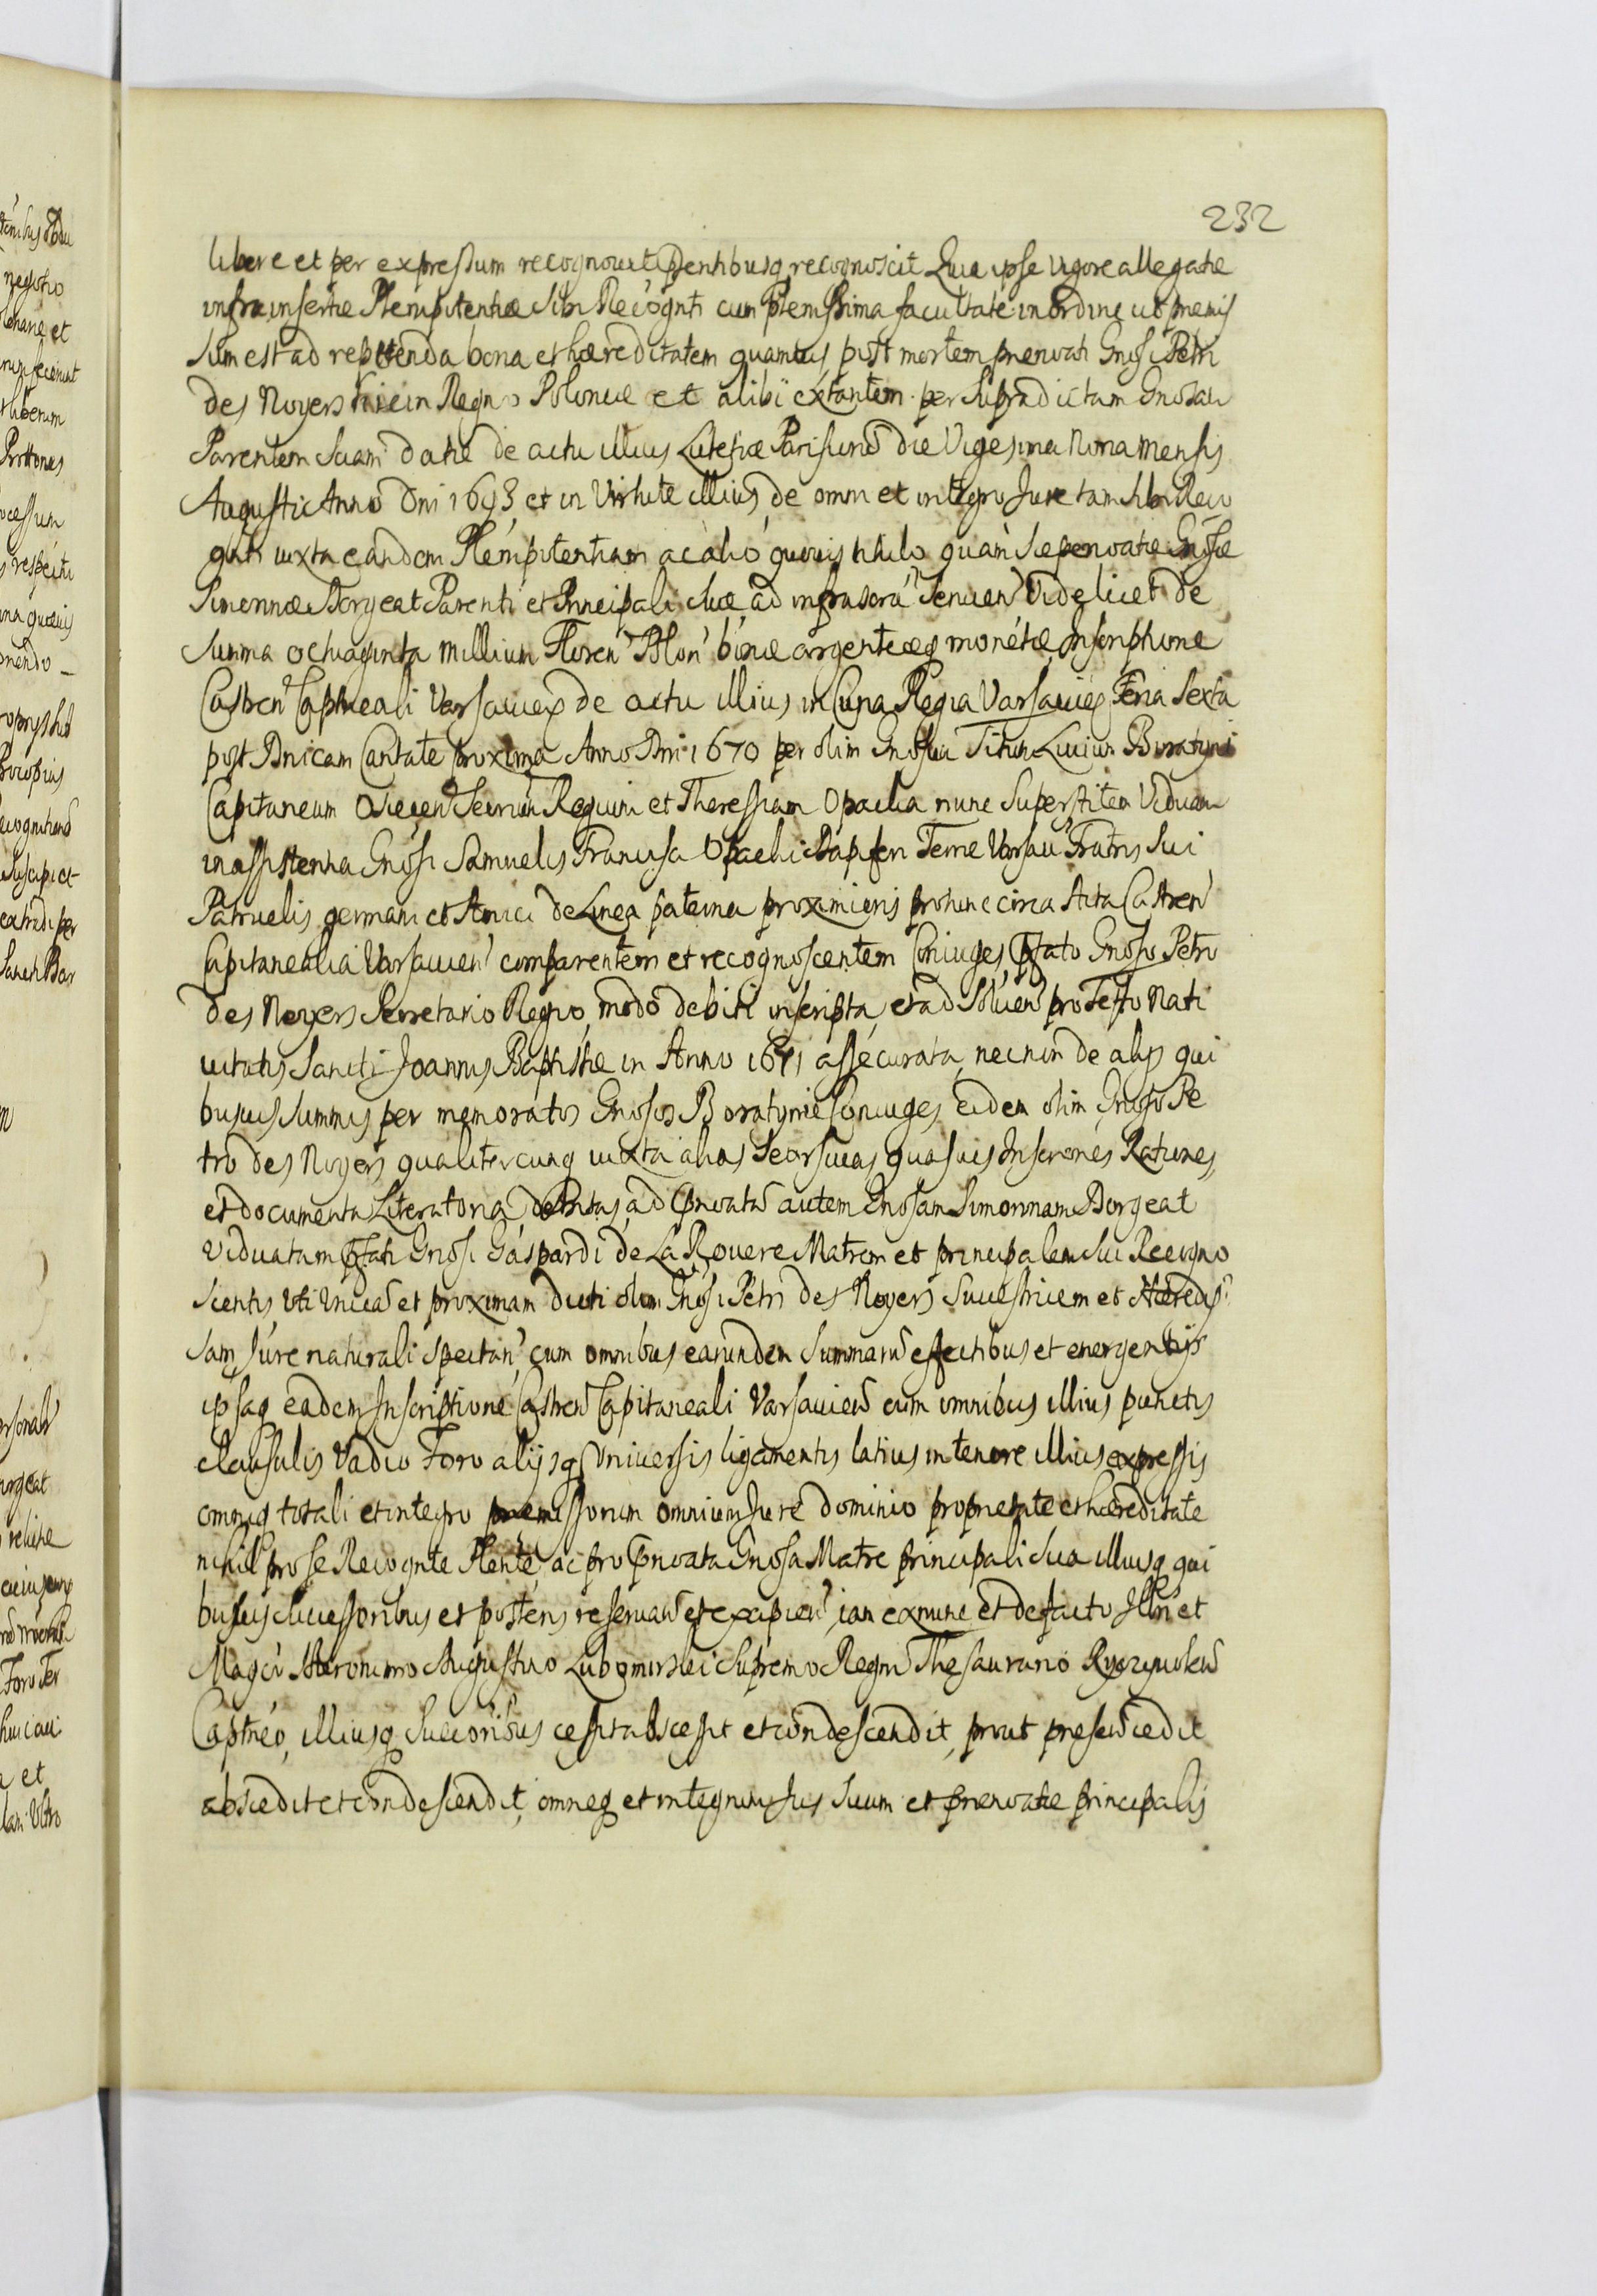 232
libere et per expressum recognovit pntibusq recognoscit Quia ipse vigore allegatæ
infra insertæ Plenipotentiæ sibi Recognti cum plenissima facultate in ordine ut premis
sum est ad repetenda bona et hæreditatem quamvis post mortem prænovati Gnosi Petri
des Noyers sive in Regno Poloniæ et alibi extantem per supradictam Gnosam
Parentem suam datæ de actu illius Lutetiæ Parisiorū die Vigesima Nona Mensis
Augusti Anno Dni 1693 et in Virtute illius de omni et integro Jure tam sibi Reco
gnti iuxta eandem Plenipotentiam ac alio quovis titulo quam sæpenoatæ Gnosæ
Simonnæ Borgeat Parenti et Principali suæ ad infrascra Servien Videlicet de
Summa octuaginta millium Floren Polon bonæ argenteæq monetæ Inscriptione
Castren Captneali Varsavien de actu illius in Curia Regia Varsavien Feria Sexta
post Dnicam Cantate proxima Anno Dni 1670 per olim Gnosum Titum Livium Boratyni
Capitaneum Osiecen Secrium Regium et Theressiam Opacka nunc Superstitem Viduam
in assistentia Gnosi Samuelis Francisci Opacki Dapiferi Terræ Varsav Fratris sui
Patruelis germani et Amici de Linea paterna proximioris protunc circa Acta Castren
Capitanealia Varsavien comparentem et recognoscentem Coniuges pfato Gnoso Petro
des Noyers Secretario Regio modo debiti inscripta et ad solven pro Festo Nati
vitatis Sancti Joannis Baptistæ in Anno 1671 assecurata, necnon de alijs qui
busvis summis per memoratos Gnosos Boratynie Coniuges Eidem olim Gnoso Pe
tro des Noyers qualitercunq iuxta alias Seorsivas quasvis Inscrones Rationes
et documenta Literatoria debitas, ad pnoatā autem Gnosam Simonnam Borgeat
Viduatam pfati Gnosi Gaspardi de La Rouere Matrem et principalem sui Recogno
scentis, Uti Unicā et proximam dicti olim Gnosi Petri des Noyers Successricem et Hæredis
sam Jure naturali spectan, cum omnibus earundem Summarū effectibus et energentijs
ipsaq eadem Inscriptione Castren Capitaneali Varsavien cum omnibus illius punctis
clausulis Vadio Foro alijsq Universis ligamentis latius in tenore illius expressis
omniq totali et integro premissorum omnium Jure dominio proprietate et hæreditate
nihil pro se Recognte Plente ac pro pnoata Gnosa Matre principali sua illiusq qui
busvis Successoribus et posteris reservan et excipien iam exnunc et defacto Illri et
Magco Hieronimo Augustino Lubomirski Supremo Regni Thesaurario Ryczywolen
Captneo, illiusq Succoribus cessit abscessit et condescendit, prout presen cedit
abscedit et condescendit, omneq et integrum Jus suum et prænoatæ principalis